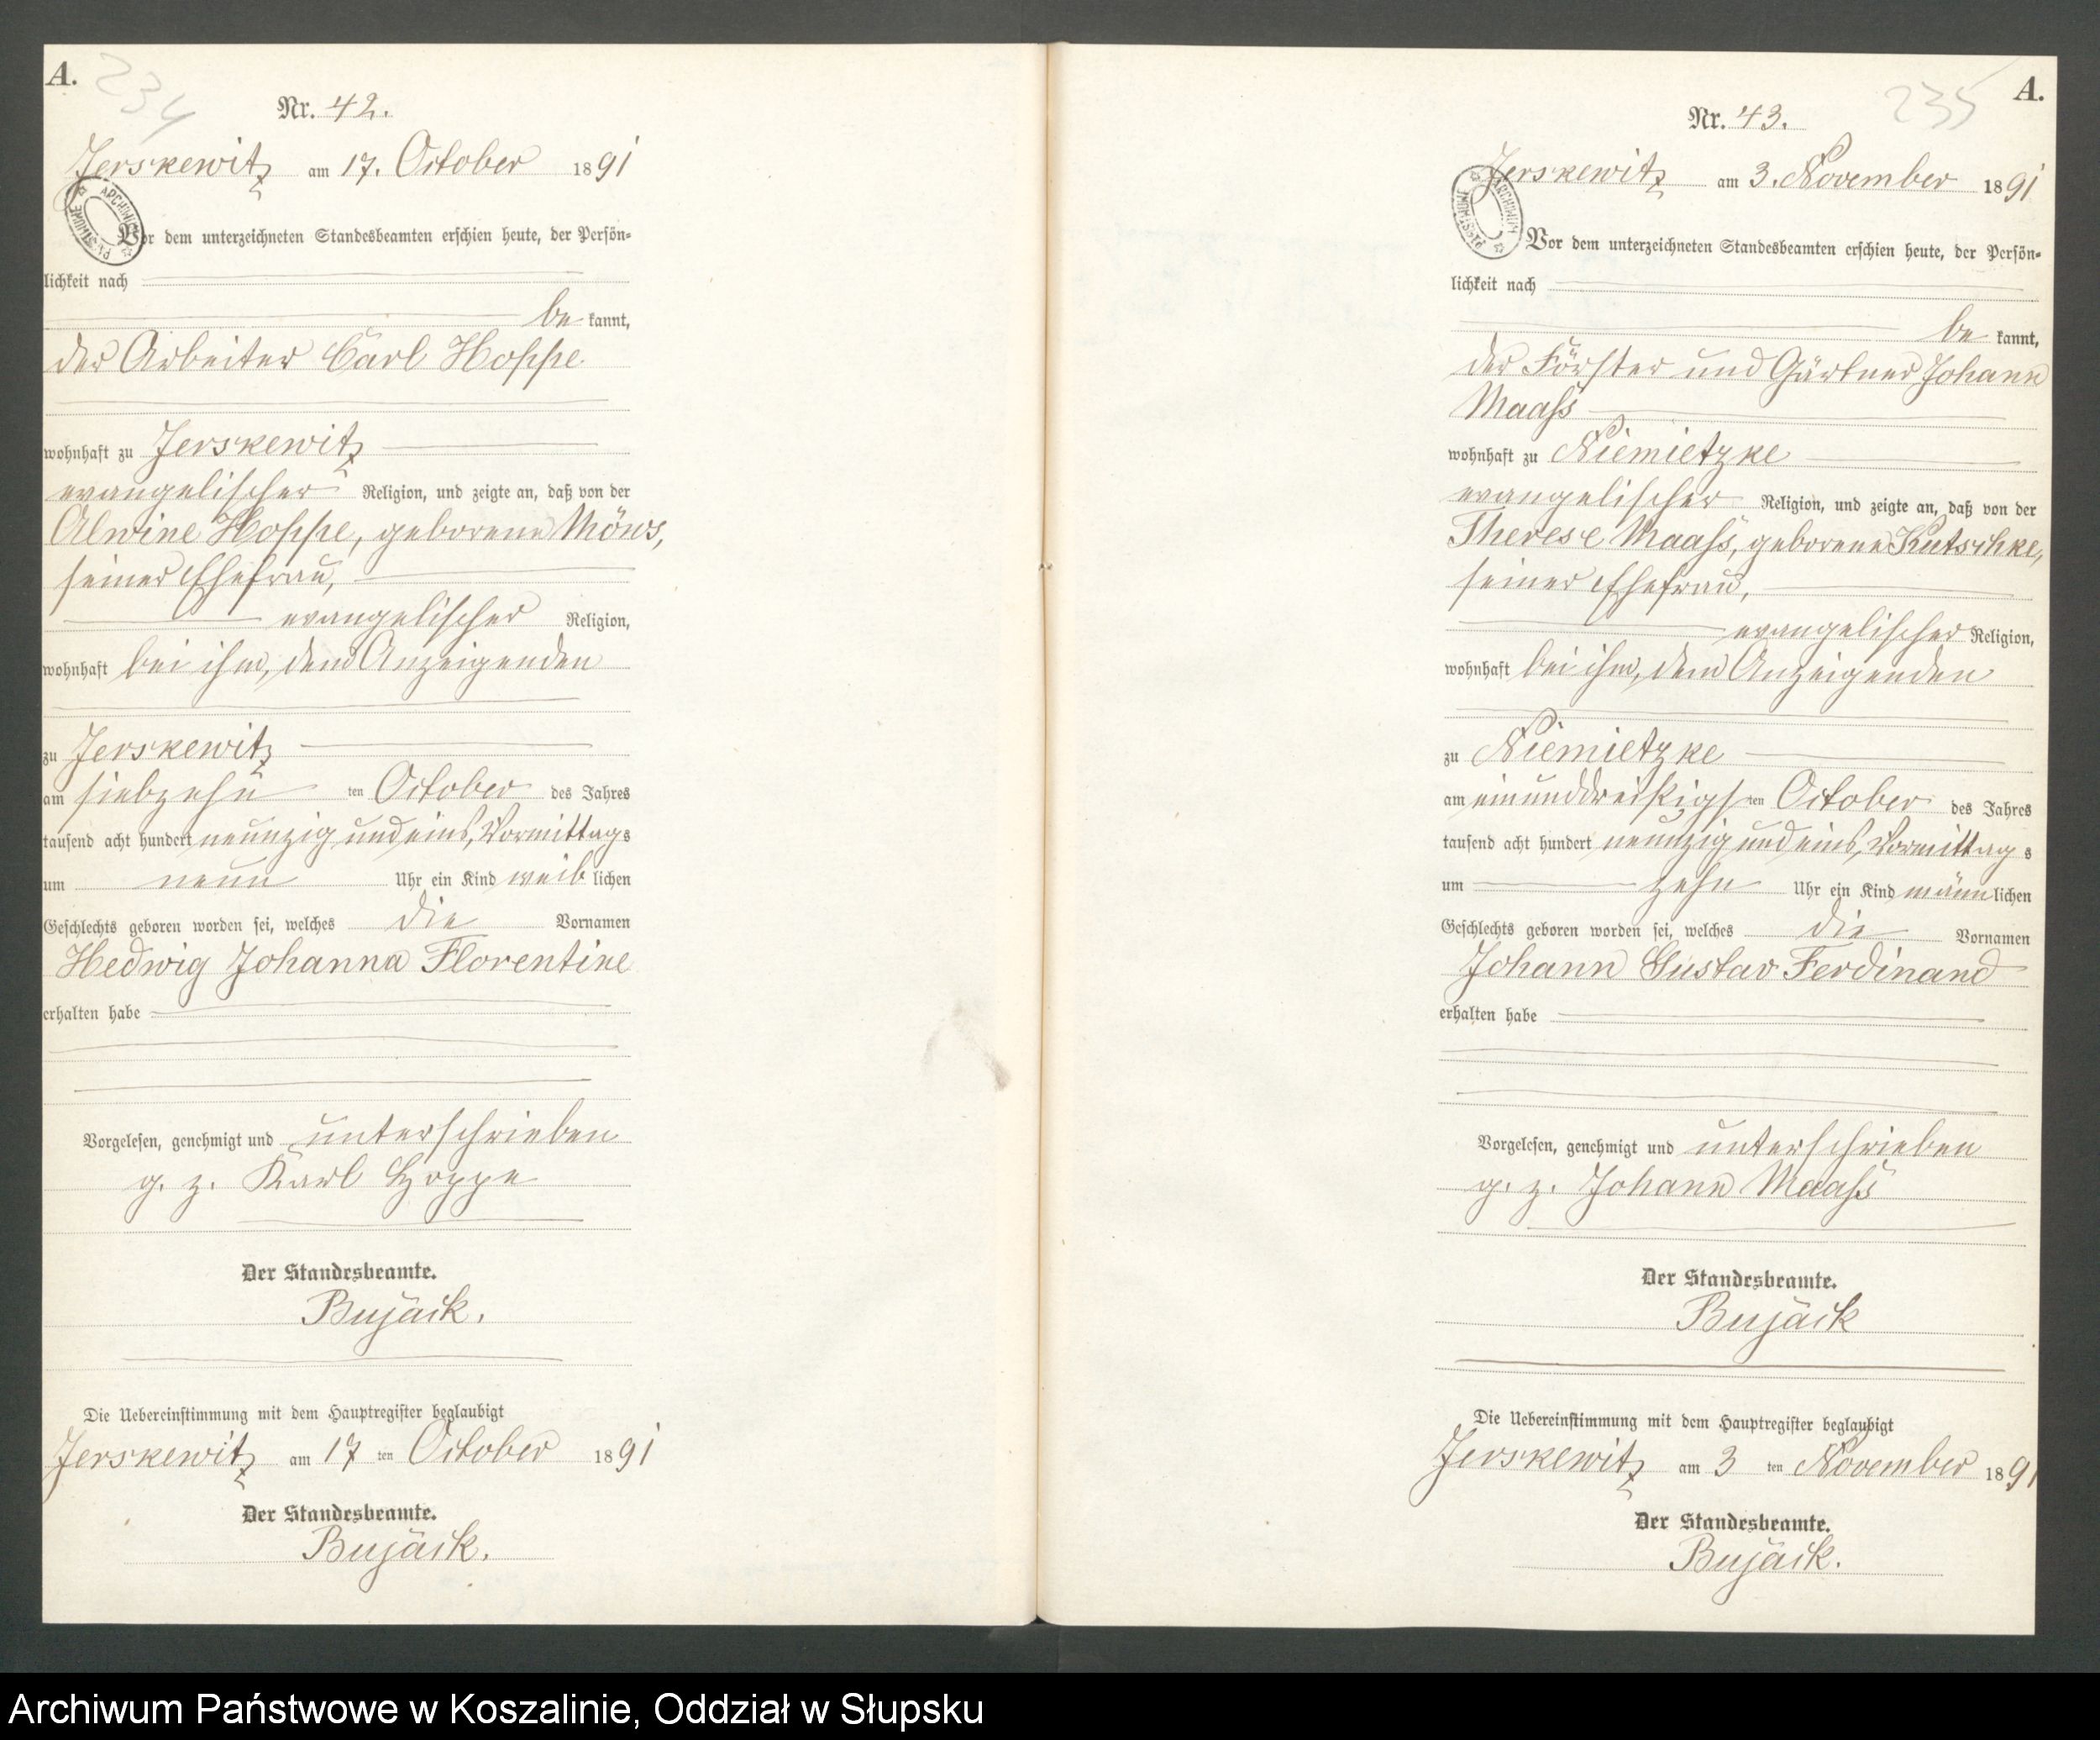 A.
234
Nr. 42.
Jerskewitz am 17. October 1891
Vor dem unterzeichneten Standesbeamten erschien heute, der Persön=
lichkeit nach
be kannt,
der Arbeiter Carl Hoppe
wohnhaft zu Jerskewitz
evangelischer Religion, und zeigte an, daß von der
Alwine Hoppe, geborene Möws,
seiner Ehefrau,
evangelischer Religion,
wohnhaft bei ihm, dem Anzeigenden
zu Jerskewitz
am siebzehn ten October des Jahres
tausend acht hundert neunzig und eins, Vormittags
um neun Uhr ein Kind weiblichen
Geschlechts geboren worden sei, welches die Vornamen
Hedwig Johanna Florentine
erhalten habe
Vorgelesen, genehmigt und unterschrieben
g. z. Karl Hoppe
Der Standesbeamte.
Bujack.
Die Uebereinstimmung mit dem Hauptregister beglaubigt
Jerskewitz am 17 ten October 1891
Der Standesbeamte.
Bujack.
A.
235
Nr. 43.
Jerskewitz am 3. November 1891
Vor dem unterzeichneten Standesbeamten erschien heute, der Persön=
lichkeit nach
be kannt,
der Förster und Gärtner Johann
Maaß
wohnhaft zu Niemietzke
evangelischer Religion, und zeigte an, daß von der
Therese Maaß, geborene Kutschke,
seiner Ehefrau,
evangelischer Religion,
wohnhaft bei ihm, dem Anzeigenden
zu Niemietzke
am einunddreißigsten October des Jahres
tausend acht hundert neunzig und eins, Vormittags
um zehn Uhr ein Kind männlichen
Geschlechts geboren worden sei, welches die Vornamen
Johann Gustav Ferdinand
erhalten habe
Vorgelesen, genehmigt und unterschrieben
g. z. Johann Maaß
Der Standesbeamte.
Bujack
Die Uebereinstimmung mit dem Hauptregister beglaubigt
Jerskewitz am 3 ten November 1891
Der Standesbeamte.
Bujack.
Archiwum Państwowe w Koszalinie, Oddział w Słupsku